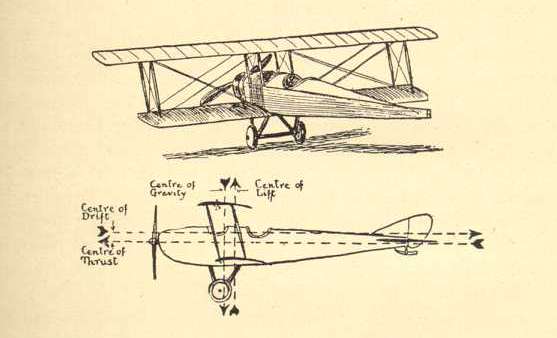 Centre of
Gravity
Centre of
Lift
Centre of
Drift
Centre of
Thrust